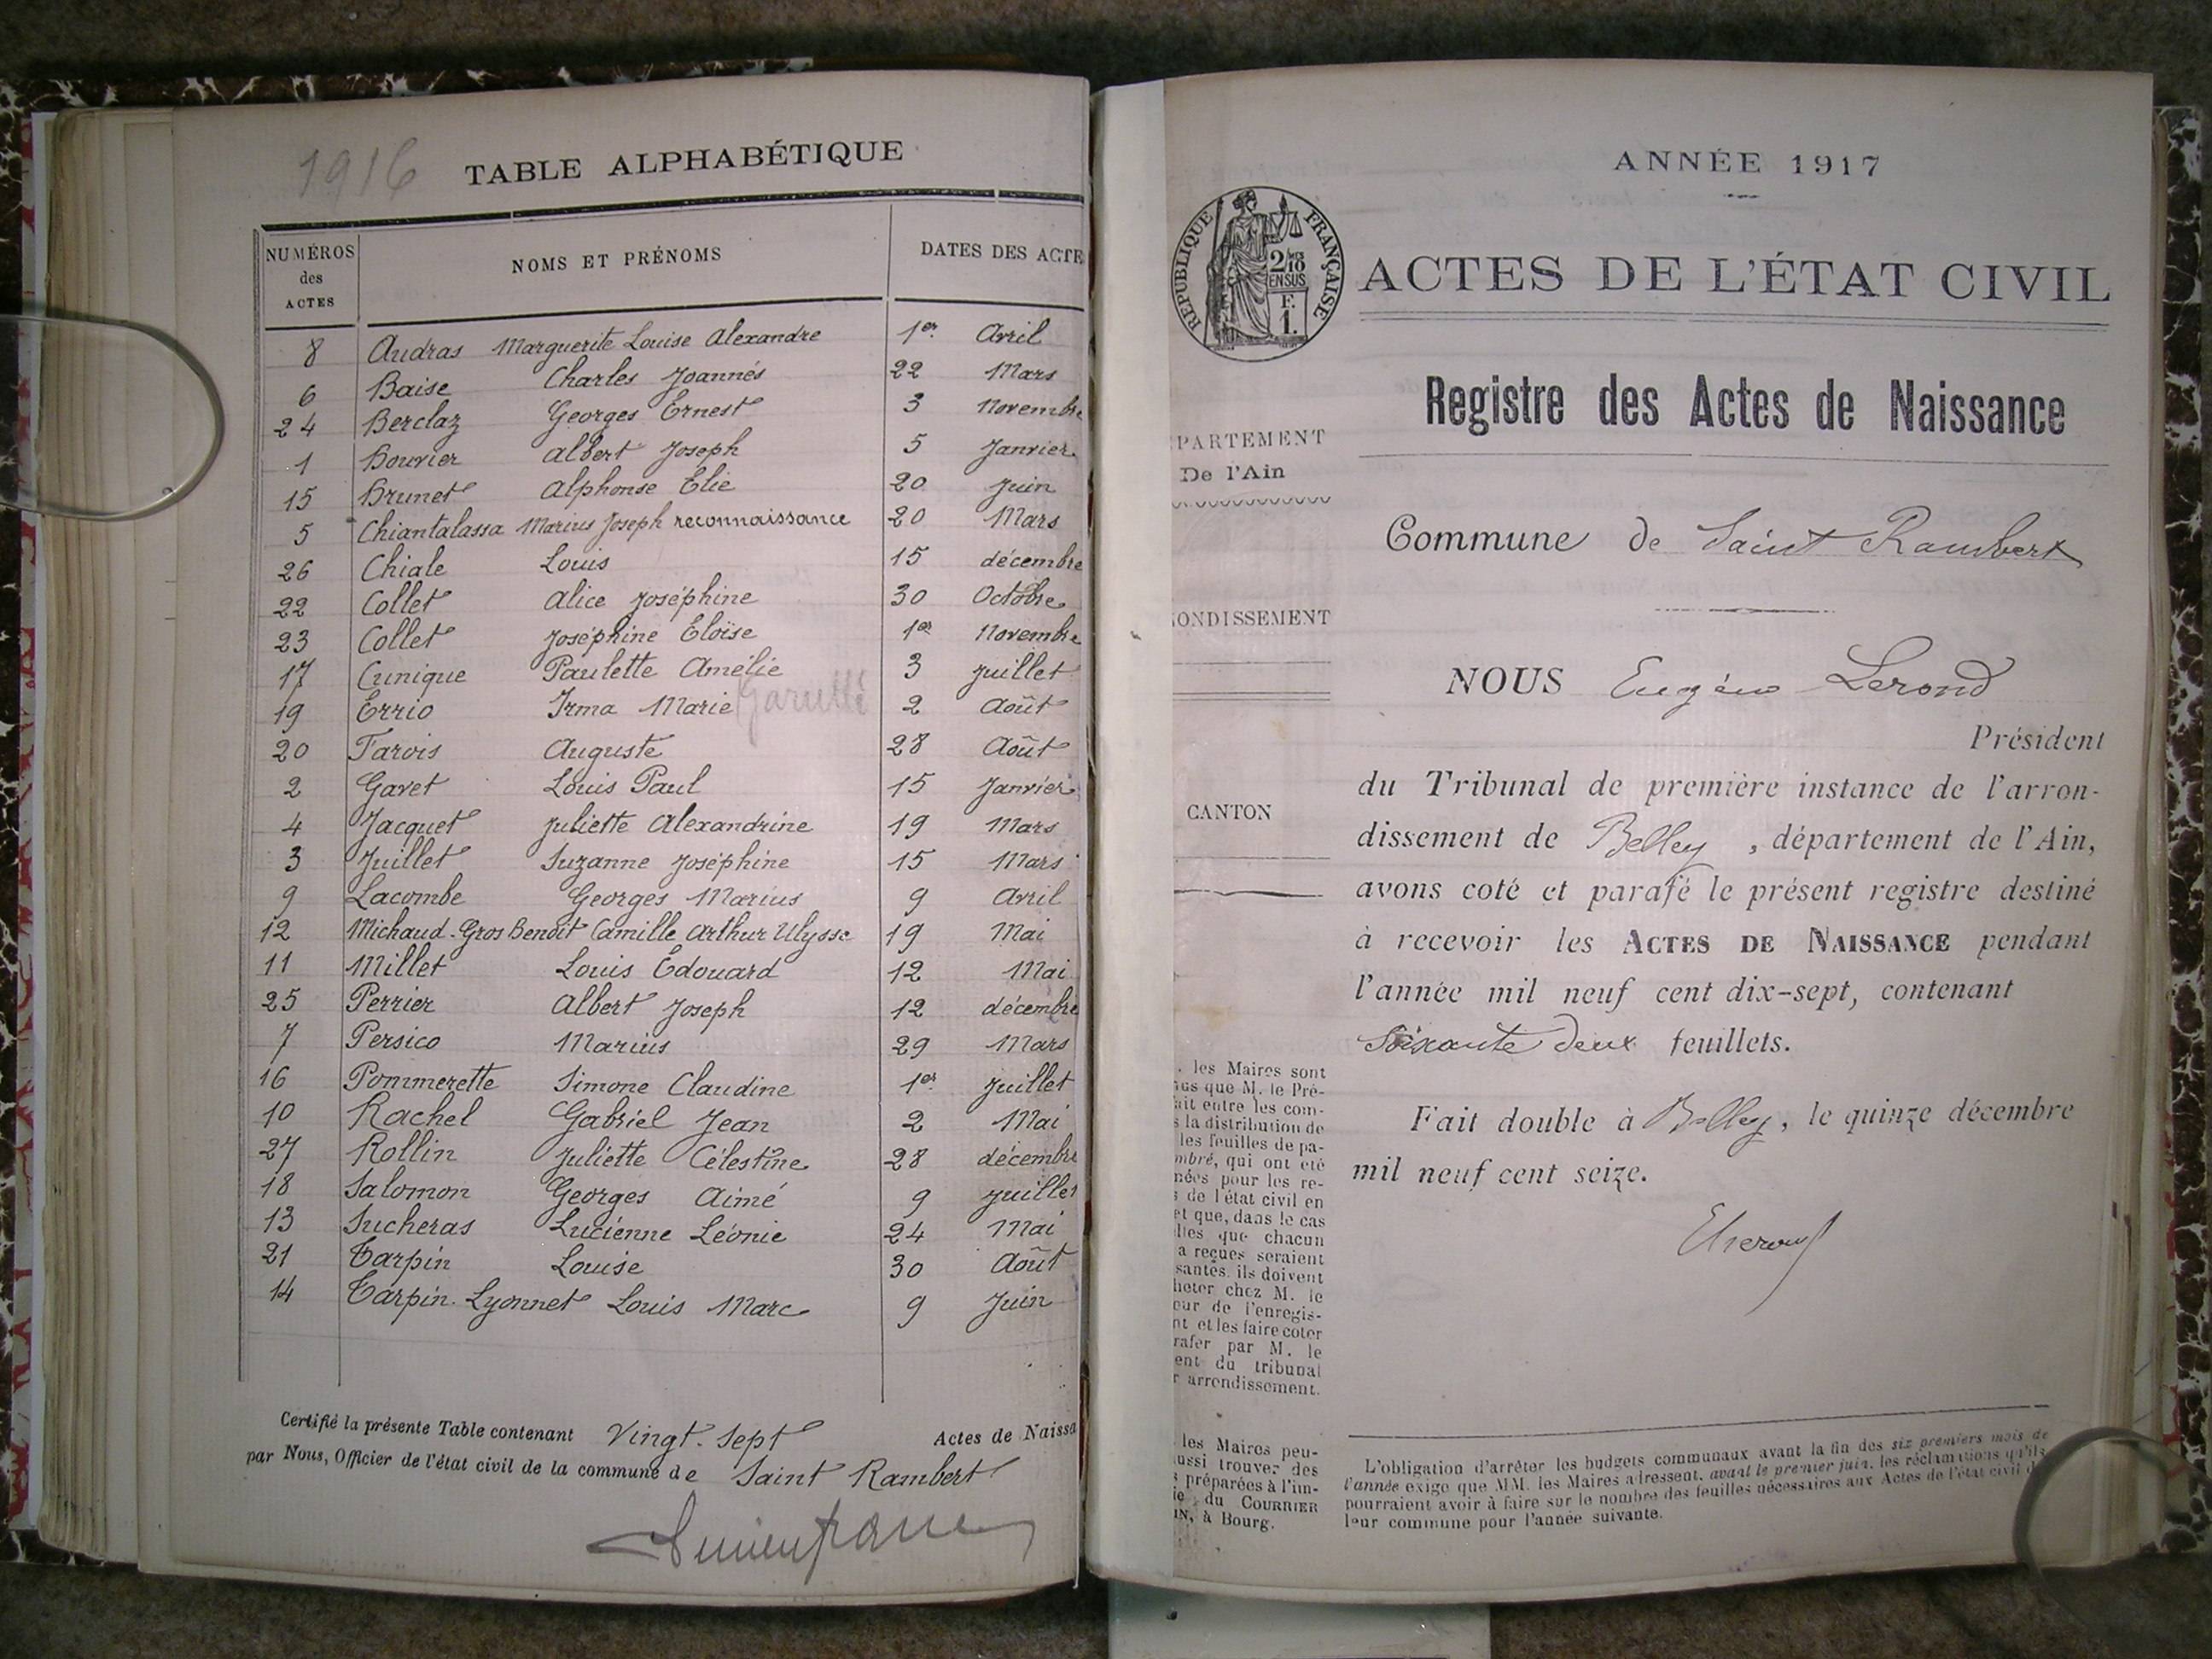 1916 TABLE ALPHABÉTIQUE
NUMÉROS des ACTES NOMS ET PRÉNOMS DATES DES ACTE
8 Audras Marguerite Louise Alexandre 1er Avril
6 Baise Charles Joannés 22 Mars
24 Berclaz Georges Ernest 3 Novembre
1 Bouvier Albert Joseph 5 Janvier
15 Brunet Alphonse Elie 20 Juin
5 Chiantalassa Marius Joseph reconnaissance 20 Mars
26 Chiale Louis 15 décembre
22 Collet Alice Joséphine 30 Octobre
23 Collet Joséphine Eloïse 1er Novembre
17 Cunique Paulette Amélie 3 Juillet
19 Errio Irma Marie 2 Août
20 Farois Auguste 28 Août
2 Gavet Louis Paul 15 Janvier
4 Jacquet Juliette Alexandrine 19 Mars
3 Juillet Suzanne Joséphine 15 Mars
9 Lacombe Georges Marius 9 Avril
12 Michaud-Gros Benoît Camille Arthur Ulysse 19 Mai
11 Millet Louis Edouard 12 Mai
25 Perrier Albert Joseph 12 décembre
7 Persico Marius 29 Mars
16 Pommerette Simone Claudine 1er Juillet
10 Rachel Gabriel Jean 2 Mai
27 Rollin Juliette Célestine 28 décembre
18 Salomon Georges Aimé 9 Juillet
13 Sucheras Lucienne Léonie 24 Mai
21 Tarpin Louise 30 Août
14 Tarpin-Lyonnet Louis Marc 9 Juin
Certifié la présente Table contenant Vingt-Sept Actes de Naissa
par Nous, Officier de l'état civil de la commune de Saint Rambert
ANNÉE 1917
RÉPUBLIQUE FRANÇAISE
2/10 EN SUS
F. 1.
ACTES DE L'ÉTAT CIVIL
Registre des Actes de Naissance
PARTEMENT
De l'Ain
ONDISSEMENT
CANTON
Commune de Saint Rambert
NOUS Eugène Lerond
Président
du Tribunal de première instance de l'arron-
dissement de Belley, département de l'Ain,
avons coté et parafé le présent registre destiné
à recevoir les ACTES DE NAISSANCE pendant
l'année mil neuf cent dix-sept, contenant
Soixante deux feuillets.
Fait double à Belley, le quinze décembre
mil neuf cent seize.
. les Maires sont
que M. le Pré-
ait entre les com-
s la distribution de
les feuilles de pa-
mbré, qui ont été
nées pour les re-
s de l'état civil en
et que, dans le cas
lles que chacun
a reçues seraient
santes, ils doivent
heter chez M. le
eur de l'enregis-
nt et les faire coter
rafer par M. le
ent du tribunal
r arrondissement.
les Maires peu-
ussi trouver des
s préparées à l'im-
ie du COURRIER
IN, à Bourg.
L'obligation d'arrêter les budgets communaux avant la fin des six premiers mois de
l'année exige que MM. les Maires adressent, avant le premier juin, les réclamations qu'ils
pourraient avoir à faire sur le nombre des feuilles nécessaires aux Actes de l'état civil d
leur commune pour l'année suivante.